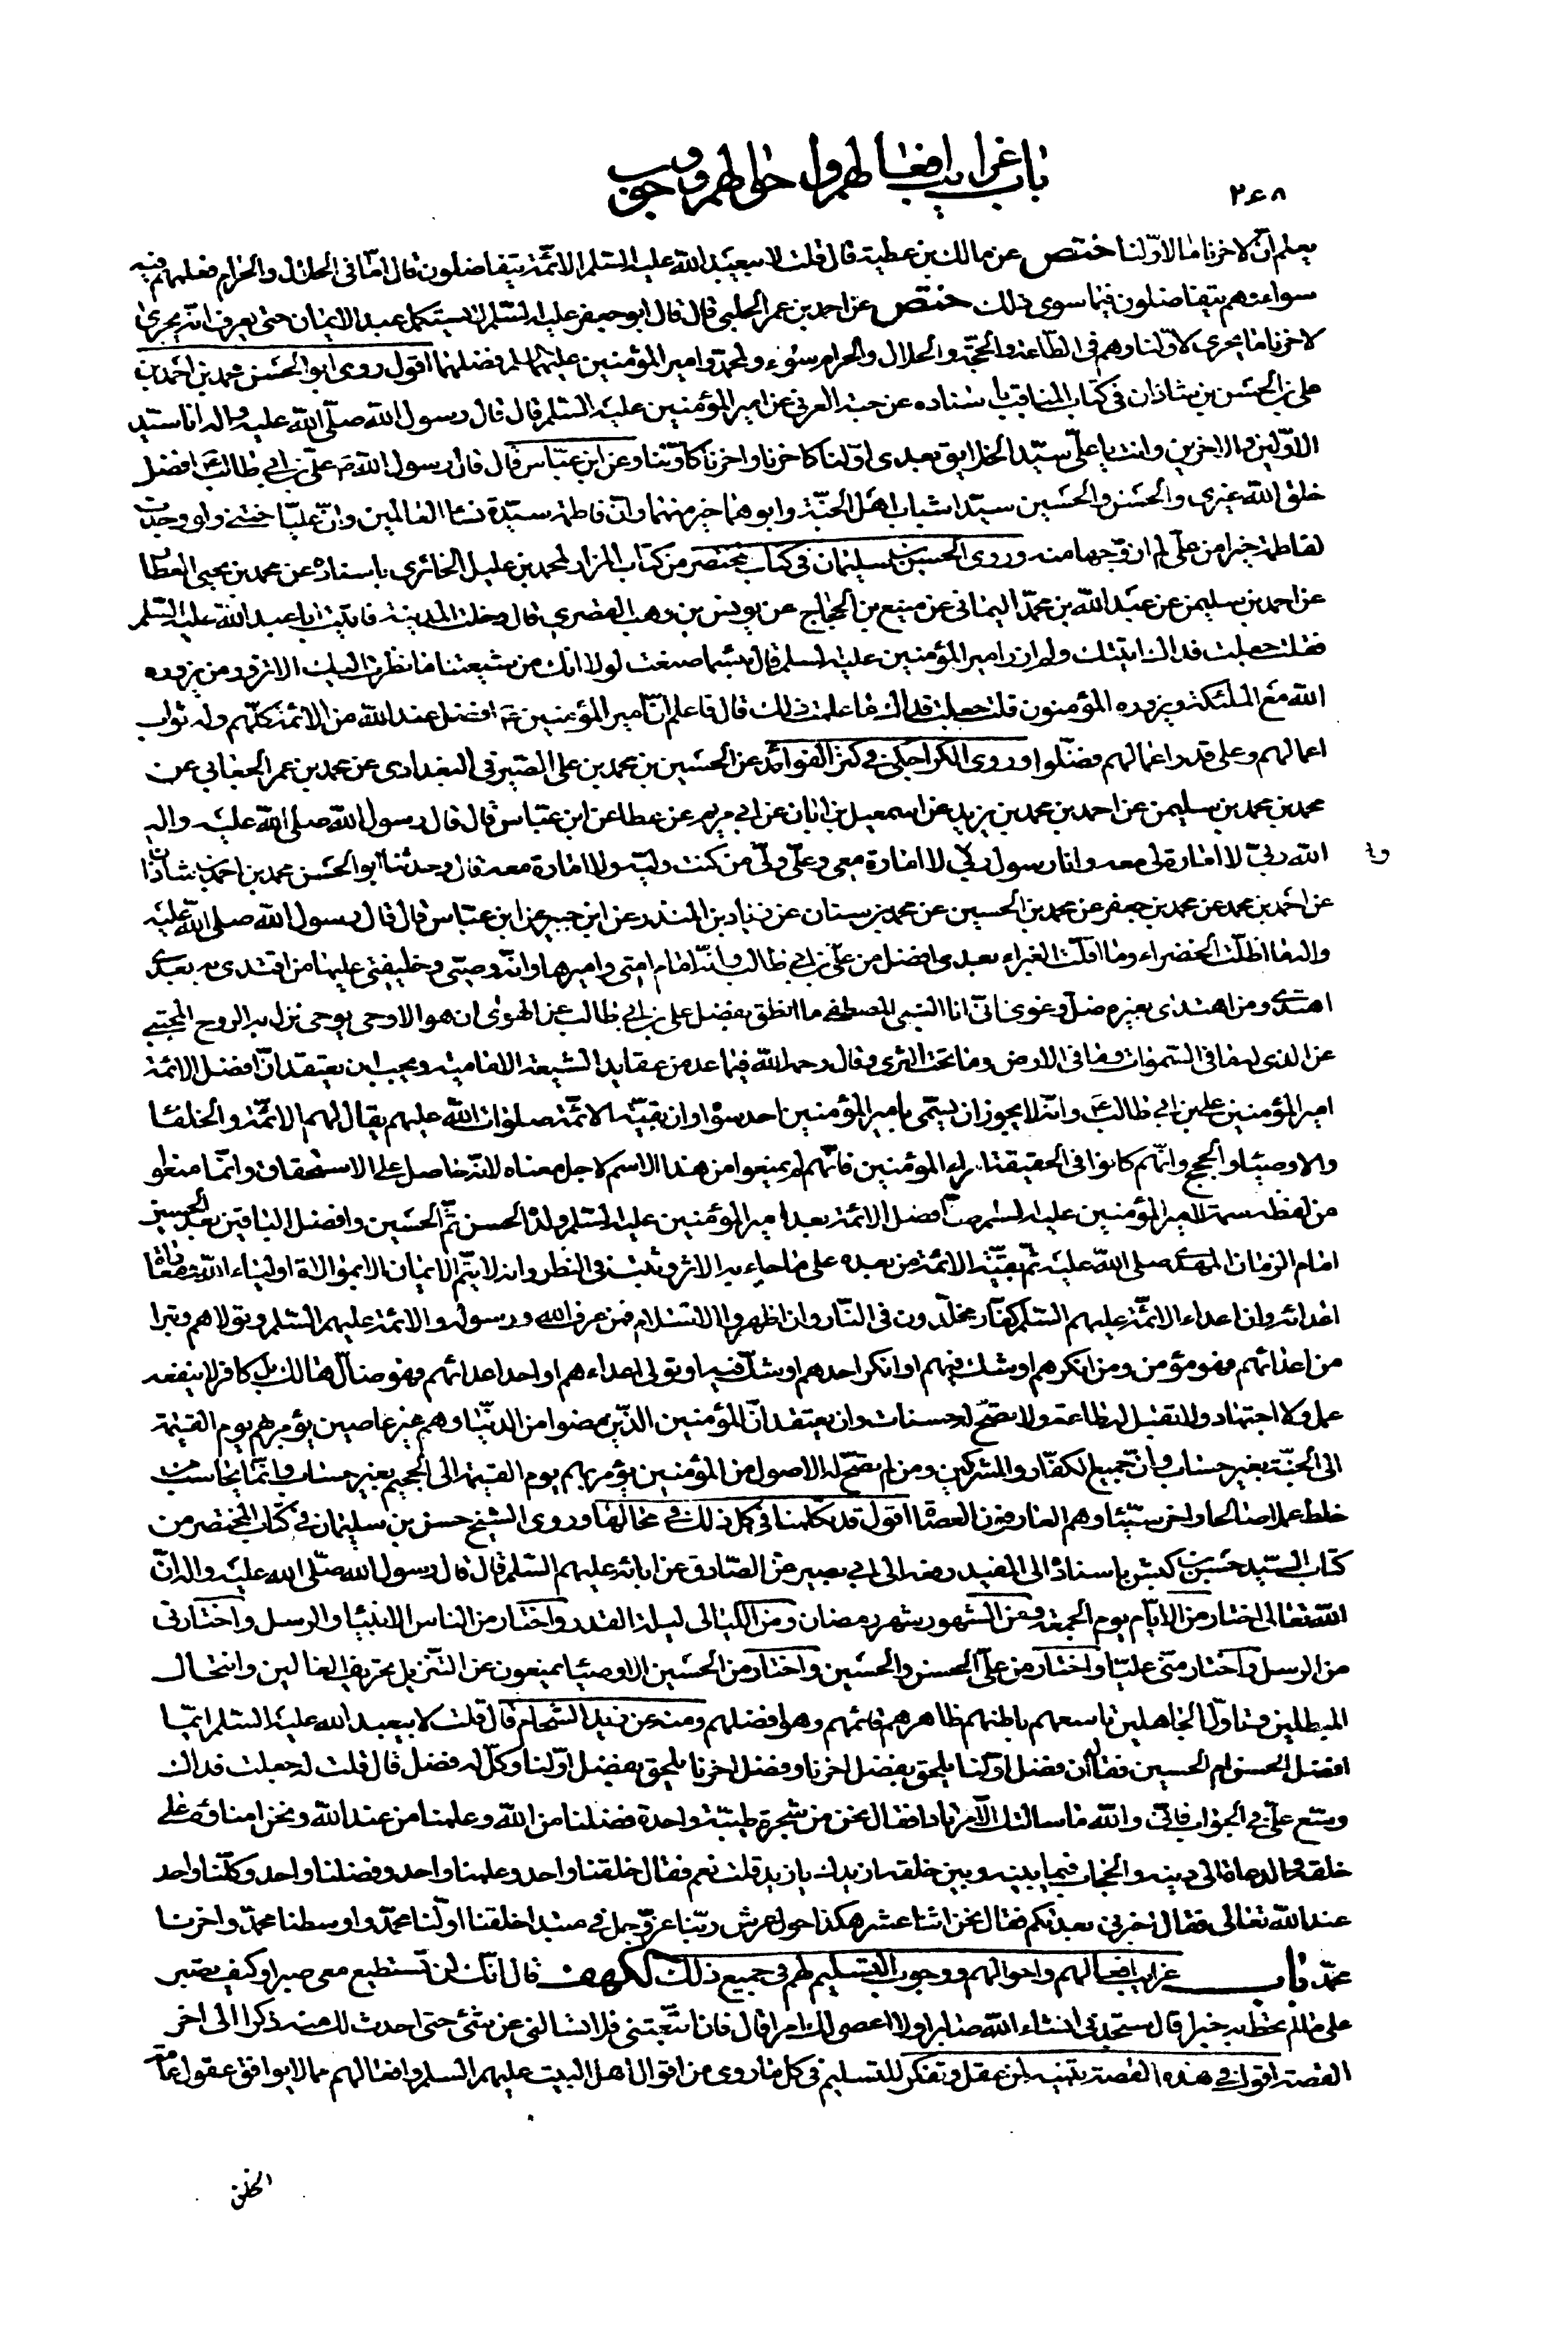 ٢۶٨
باب غرايب افعالهم واحوالهم ووجوب
يعلم انّ لاخرنا ما لاوّلنا ختص عن مالك بن عطية قال قلت لابيعبد الله عليه السّلم الائمّة يتفاضلون قال امّا فى الحلال والحرام فعلمهم فيه
سواء وهم يتفاضلون فيما سوى ذلك ختص عن احمد بن عمر الحلبى قال قال ابو جعفر عليه السّلم لا يستكمل عبد الايمان حتى يعرف انّه يجرى
لاخرنا ما يجرى لاوّلنا وهم فى الطّاعة والحجّة والحلال والحرام سواء ولمحمّد وامير المؤمنين عليهما السلم فضلهما اقول روى ابو الحسن محمد بن احمد بن
على بن الحسن بن شاذان فى كتاب المناقب باسناده عن حبة العرنى عن امير المؤمنين عليه السّلم قال قال رسول الله صلّى الله عليه واله انا سيّد
الاوّلين والاخرين وانت يا علىّ سيّد الخلايق بعدى اوّلنا كاخرنا واخرنا كاوّلنا وعن ابن عبّاس قال قال رسول الله ص علىّ بن ابى طالب ع افضل
خلق الله غيرى والحسن والحسين سيّدا شباب اهل الجنّة وابوهما خير منهما وانّ فاطمة سيّدة نساء العالمين وانّ عليّا ختنى ولو وجدت
لفاطمة خيرا من علىّ لم ازوّجها منه وروى الحسين بن سليمان فى كتاب مختصر من كتاب المزار لمحمد بن على الحائرى باسناده عن محمد بن يحيى العطار
عن احمد بن سليمن عن عبد الله بن محمّد اليمانى عن منيع بن الحجاج عن يونس بن وهب القصرى قال دخلت المدينة فاتيت ابا عبد الله عليه السّلم
فقلت جعلت فداك اتيتك ولم ازر امير المؤمنين عليه السلم قال بئسما صنعت لولا انك من شيعتنا ما نظرت اليك الا تزور من يزوره
الله مع الملئكة ويزوره المؤمنون قلت جعلت فداك ما علمت ذلك قال فاعلم انّ امير المؤمنين ع افضل عند الله من الائمّة كلّهم وله ثواب
اعمالهم وعلى قدر اعمالهم فضّلوا وروى الكراجكى فى كنز الفوائد عن الحسين بن محمد بن على الصّيرفى البغدادى عن محمد بن عمر الجعابى عن
محمد بن محمد بن سليمن عن احمد بن محمد بن يزيد عن اسمعيل بن ابان عن ابى مريم عن عطا عن ابن عبّاس قال قال رسول الله صلى الله عليه واله
الله ربّى لا امارة لى معه وانا رسول ربّى لا امارة معى وعلىّ ولىّ من كنت وليّه ولا امارة معه قال وحدثنا ابو الحسن محمد بن احمد بن شاذان
عن احمد بن محمد عن محمد بن جعفر عن محمد بن الحسين عن محمد بن سنان عن زياد بن المنذر عن ابن جبير عن ابن عبّاس قال قال رسول الله صلى الله عليه
واله ما اظلّت الخضراء وما اقلّت الغبراء بعدى افضل من علىّ بن ابى طالب وانّه امام امتى واميرها وانّه وصيّى وخليفتى عليها من اقتدى به بعدى
اهتدى ومن اهتدى بغيره ضلّ وغوى انّى انا النبى المصطفى ما انطق بفضل على بن ابى طالب عن الهوى ان هو الا وحى يوحى نزل به الروح المجتبى
عن الذى له ما فى السّموات وما فى الارض وما تحت الثرى وقال رحمه الله فيما عد من عقايد الشيعة الامامية ويجب ان يعتقد انّ افضل الائمّة
امير المؤمنين على بن ابى طالب ع وانّه لا يجوز ان يسمّى بامير المؤمنين احد سواه وان بقيّة الائمّة صلوات الله عليهم يقال لهم الائمّة والخلفاء
والاوصياء والحجج وانّهم كانوا فى الحقيقة امراء المؤمنين فانّهم لم يمنعوا من هذا الاسم لاجل معناه لانّه حاصل على الاستحقاق وانّما منعوا
من لفظه سمة لامير المؤمنين عليه السّلم وانّ افضل الائمّة بعد امير المؤمنين عليه السّلم ولده الحسن ثمّ الحسين وافضل الباقين بعد الحسين
امام الزمان المهدى صلى الله عليه ثمّ بقيّة الائمّة من بعده على ما جاء به الاثر وثبت فى النظر وانه لا يتمّ الايمان الا بموالاة اولياء الله ومعاداة
اعدائه وان اعداء الائمّة عليهم السّلم كفّار مخلّدون فى النّار وان اظهروا الاسلام فمن عرف الله ورسوله والائمّة عليهم السّلم وتولاهم وتبرا
من اعدائهم فهو مؤمن ومن انكرهم او شكّ فيهم او انكر احدهم او شكّ فيه او تولى اعداءهم او احد اعدائهم فهو ضالّ هالك بل كافر لا ينفعه
عمل ولا اجتهاد ولا تقبل له طاعة ولا يصحّ له حسنات وان يعتقد انّ المؤمنين الذّين مضوا من الدنّيا وهم غير عاصين يؤمر بهم يوم القيمة
الى الجنّة بغير حساب وانّ جميع الكفّار والمشركين ومن لم تصحّ له الاصول من المؤمنين يؤمر بهم يوم القيمة الى الجحيم بغير حساب وانّما يحاسب من
خلط عملا صالحا واخر سيّئا وهم العارفون العصاة اقول قد تكلمنا فى كل ذلك فى محالها وروى الشيخ حسن بن سليمان فى كتاب المختصر من
كتاب السّيد حسن بن كبش باسناده الى المفيد رفعه الى ابى بصير عن الصّادق عن ابائه عليهم السّلم قال قال رسول الله صلّى الله عليه واله انّ
الله تعالى اختار من الايّام يوم الجمعة ومن الشهور شهر رمضان ومن الليالى ليلة القدر واختار من الناس الانبياء والرسل واختارنى
من الرسل واختار منّى عليّا واختار من علىّ الحسن والحسين واختار من الحسين الاوصياء يمنعون عن التّنزيل تحريف الغالين وانتحال
المبطلين وتاوّل الجاهلين تاسعهم باطنهم ظاهرهم قائمهم وهو افضلهم ومنه عن زيد الشّحام قال قلت لابيعبد الله عليه السّلم ايّما
افضل الحسن ام الحسين فقال ان فضل اوّلنا يلحق بفضل اخرنا وفضل اخرنا يلحق بفضل اوّلنا وكلّ له فضل قال قلت له جعلت فداك
وسّع علىّ فى الجواب فانّى والله ما سالتك الا مرتادا فقال نحن من شجرة طيّبة واحدة فضلنا من الله وعلمنا من عند الله ونحن امناؤه على
خلقه والدعاة الى دينه والحجاب فيما بينه وبين خلقه ازيدك يا زيد قلت نعم فقال خلقنا واحد وعلمنا واحد وفضلنا واحد وكلّنا واحد
عند الله تعالى فقال اخبرنى بعدتكم فقال نحن اثنا عشر هكذا حول عرش ربّنا عزّ وجل فى مبتدا خلقنا اوّلنا محمّد واوسطنا محمّد واخرنا
محمّد باب غرايب افعالهم واحوالهم ووجوب التسليم لهم فى جميع ذلك الكهف قال انّك لن تستطيع معى صبرا وكيف تصبر
على ما لم تحط به خبرا قال ستجدنى انشاء الله صابرا ولا اعصى لك امرا قال فان اتّبعتنى فلا تسالنى عن شئ حتى احدث لك منه ذكرا الى اخر
القصة اقول فى هذه القصة تنبيه لمن عقل وتفكر للتسليم فى كل ما روى من اقوال اهل البيت عليهم السلم وافعالهم مما لا يوافق عقول عامة
الخلق